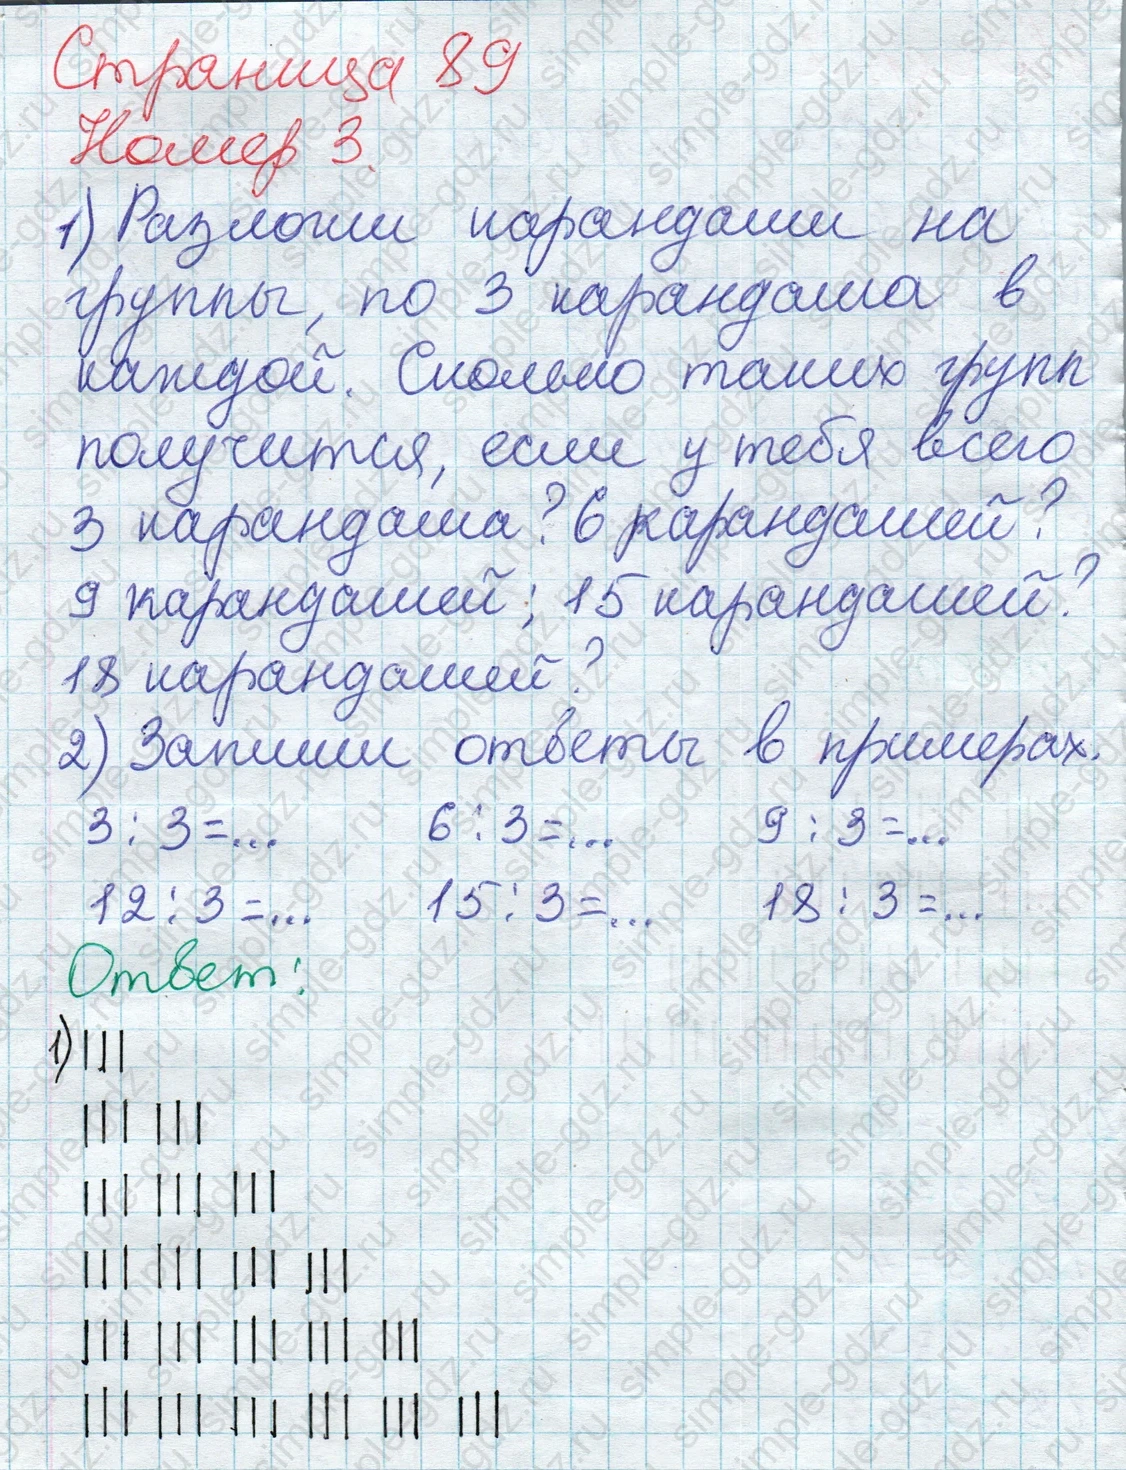 Страница 89
Номер 3.
1) Разложи карандаши на
группы, по 3 карандаша в
каждой. Сколько таких групп
получится, если у тебя всего
3 карандаша? 6 карандашей?
9 карандашей; 15 карандашей?
18 карандашей?
2) Запиши ответы в примерах.
3:3=... 6:3=... 9:3=...
12:3=... 15:3=... 18:3=...
Ответ:
1) ||| 
||| |||
||| ||| |||
||| ||| ||| |||
||| ||| ||| ||| |||
||| ||| ||| ||| ||| |||
simple-gdz.ru